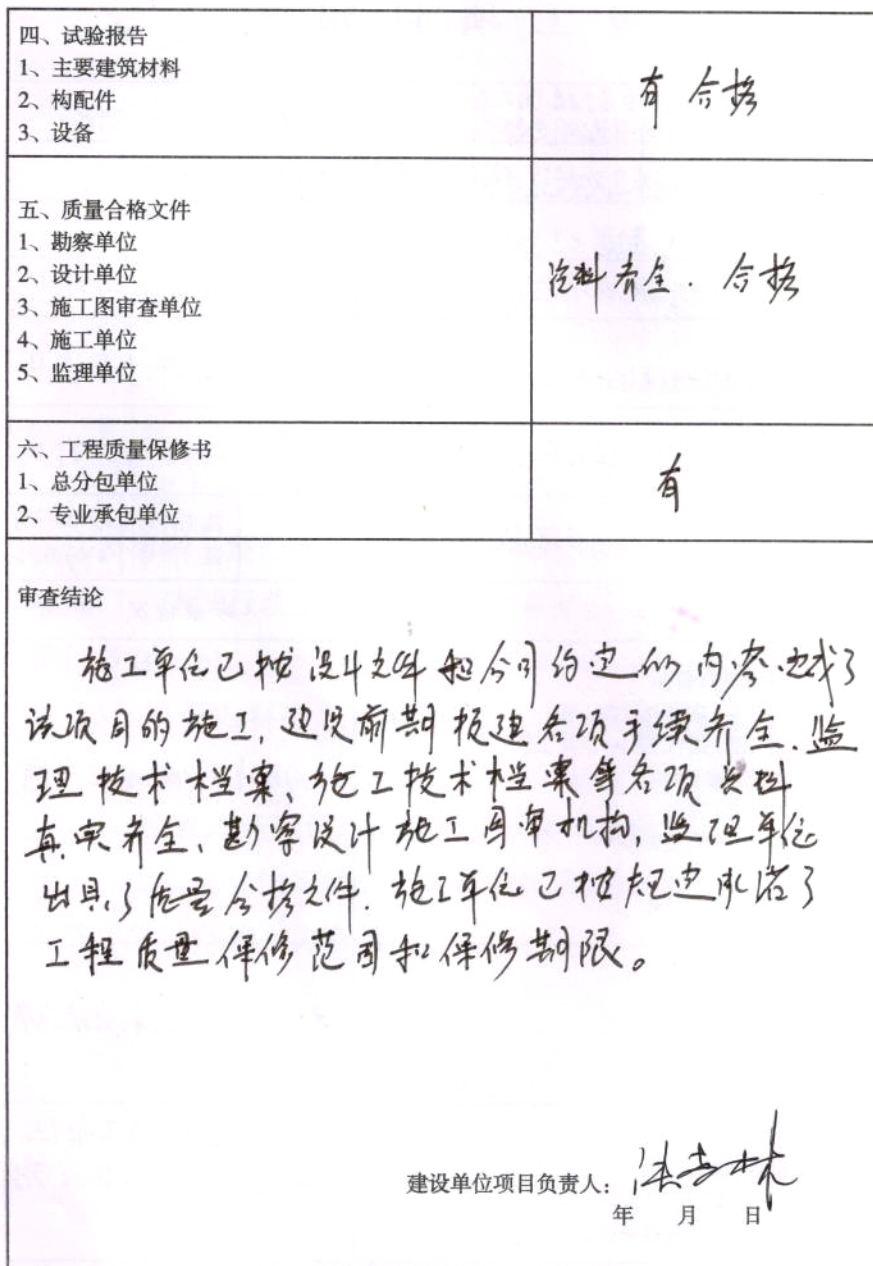 四、试验报告
1、主要建筑材料
2、构配件
3、设备
有 合格
五、质量合格文件
1、勘察单位
2、设计单位
3、施工图审查单位
4、施工单位
5、监理单位
资料齐全. 合格
六、工程质量保修书
1、总分包单位
2、专业承包单位
有
审查结论
施工单位已按设计文件和合同约定的内容完成了
该项目的施工, 建设前期报建各项手续齐全、监
理技术档案、施工技术档案等各项资料
真实齐全、勘察设计施工图审机构, 监理单位
出具了质量合格文件. 施工单位已按规定承诺了
工程质量保修范围和保修期限。
建设单位项目负责人:
年 月 日